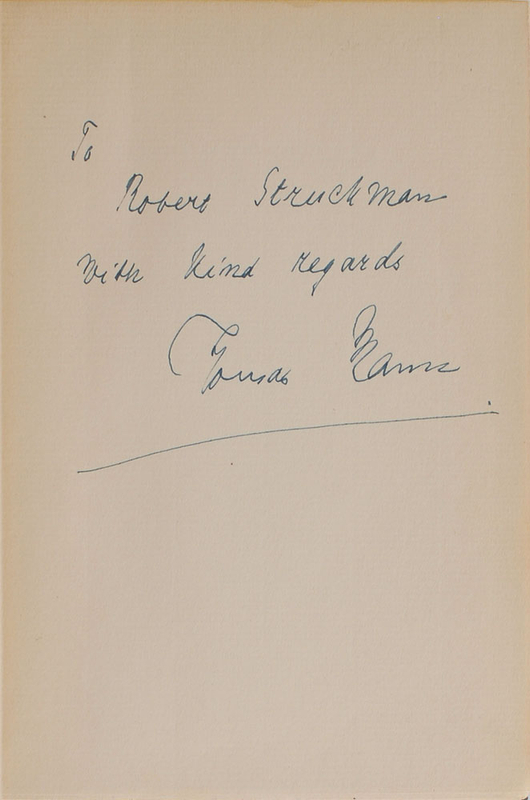 To
Robert Struckman
With kind regards
Thomas Mann